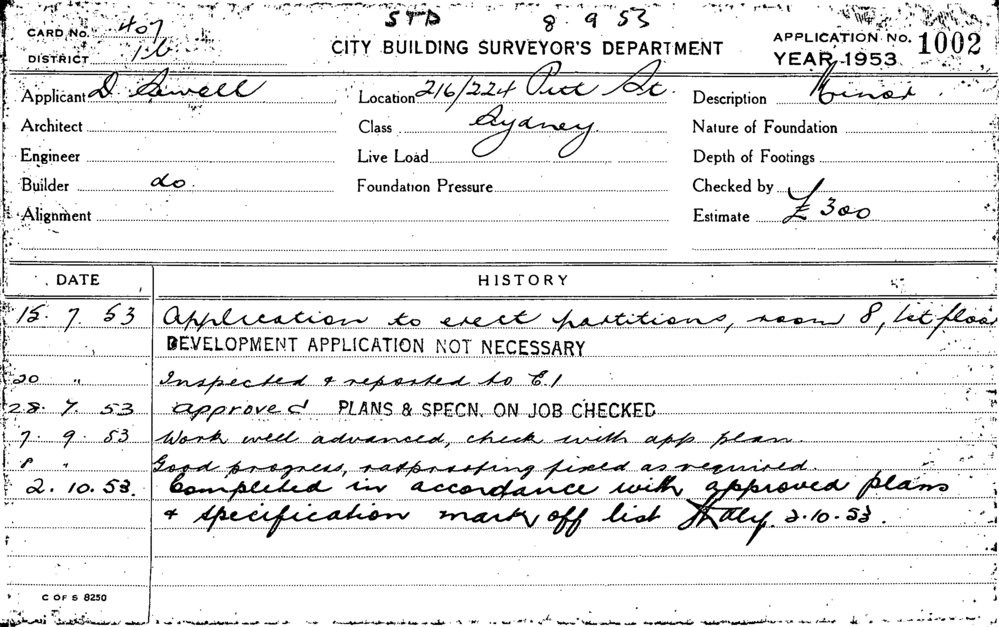 STD 8 9 53
CARD No. 407
DISTRICT 1b
CITY BUILDING SURVEYOR'S DEPARTMENT
APPLICATION No. 1002
YEAR 1953
Applicant D. Sewell Location 216/224 Pitt St. Description Minor
Architect Class Sydney Nature of Foundation
Engineer Live Load Depth of Footings
Builder do. Foundation Pressure Checked by
Alignment Estimate £300
DATE HISTORY
15. 7. 53 Application to erect partitions, room 8, 1st floor
DEVELOPMENT APPLICATION NOT NECESSARY
20 " Inspected & reported to E.1
28. 7. 53 approved PLANS & SPECN. ON JOB CHECKED
7. 9. 53 Work well advanced, check with app. plan.
8 " Good progress, ratproofing fixed as required.
2. 10. 53. Completed in accordance with approved plans
& specification mark off list 2.10.53.
C OF S 8250